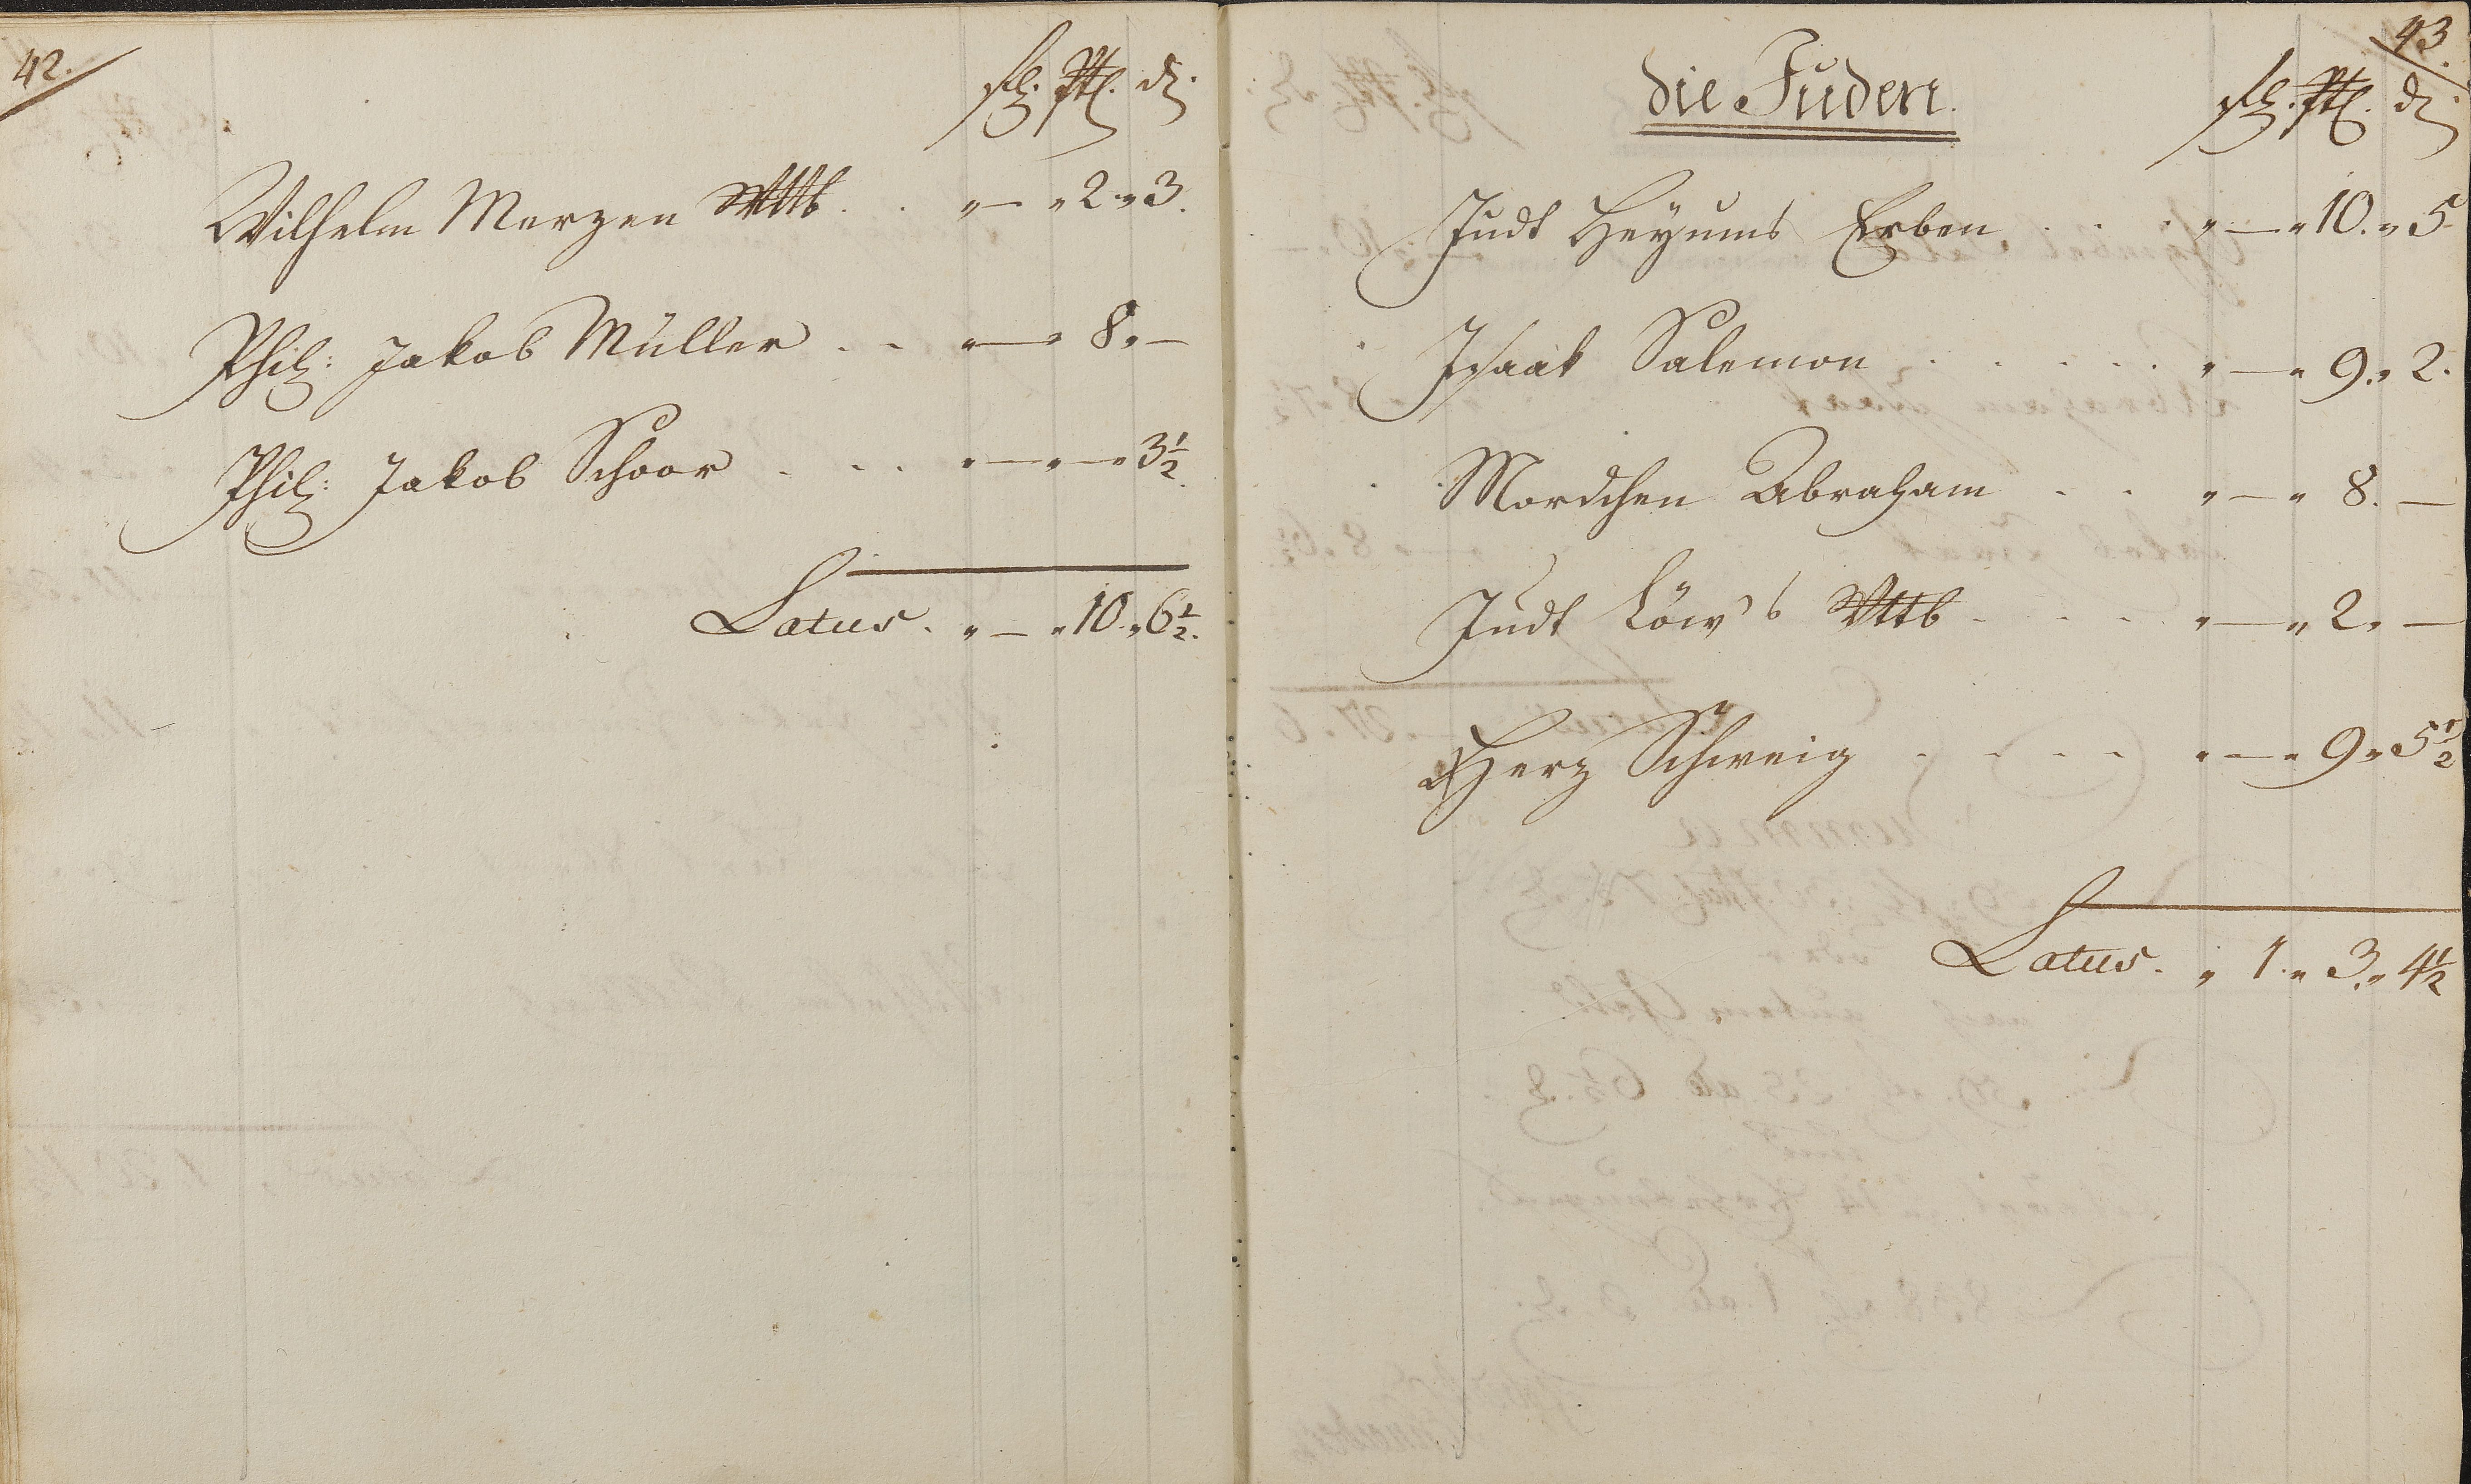 42.
fl: ß. d.
Wilhelm Merzen Wttb . . " — " 2 " 3.
Phil: Jakob Müller . . " — " 8 " —
Phil: Jakob Schoor . . . " — " — " 3 1/2.
Latus . " — " 10 " 6 1/2.
43
die Juden.
fl. ß. d.
Judt Heyums Erben . . . " — " 10. " 5
Isaak Salemon . . . . . " — " 9. " 2.
Mordchen Abraham . . " — " 8. —
Judt Löw's Wttb . . . " — " 2 " —
Herz Schweig . . . . " — " 9 " 5 1/2
Latus . " 1. " 3. " 4 1/2